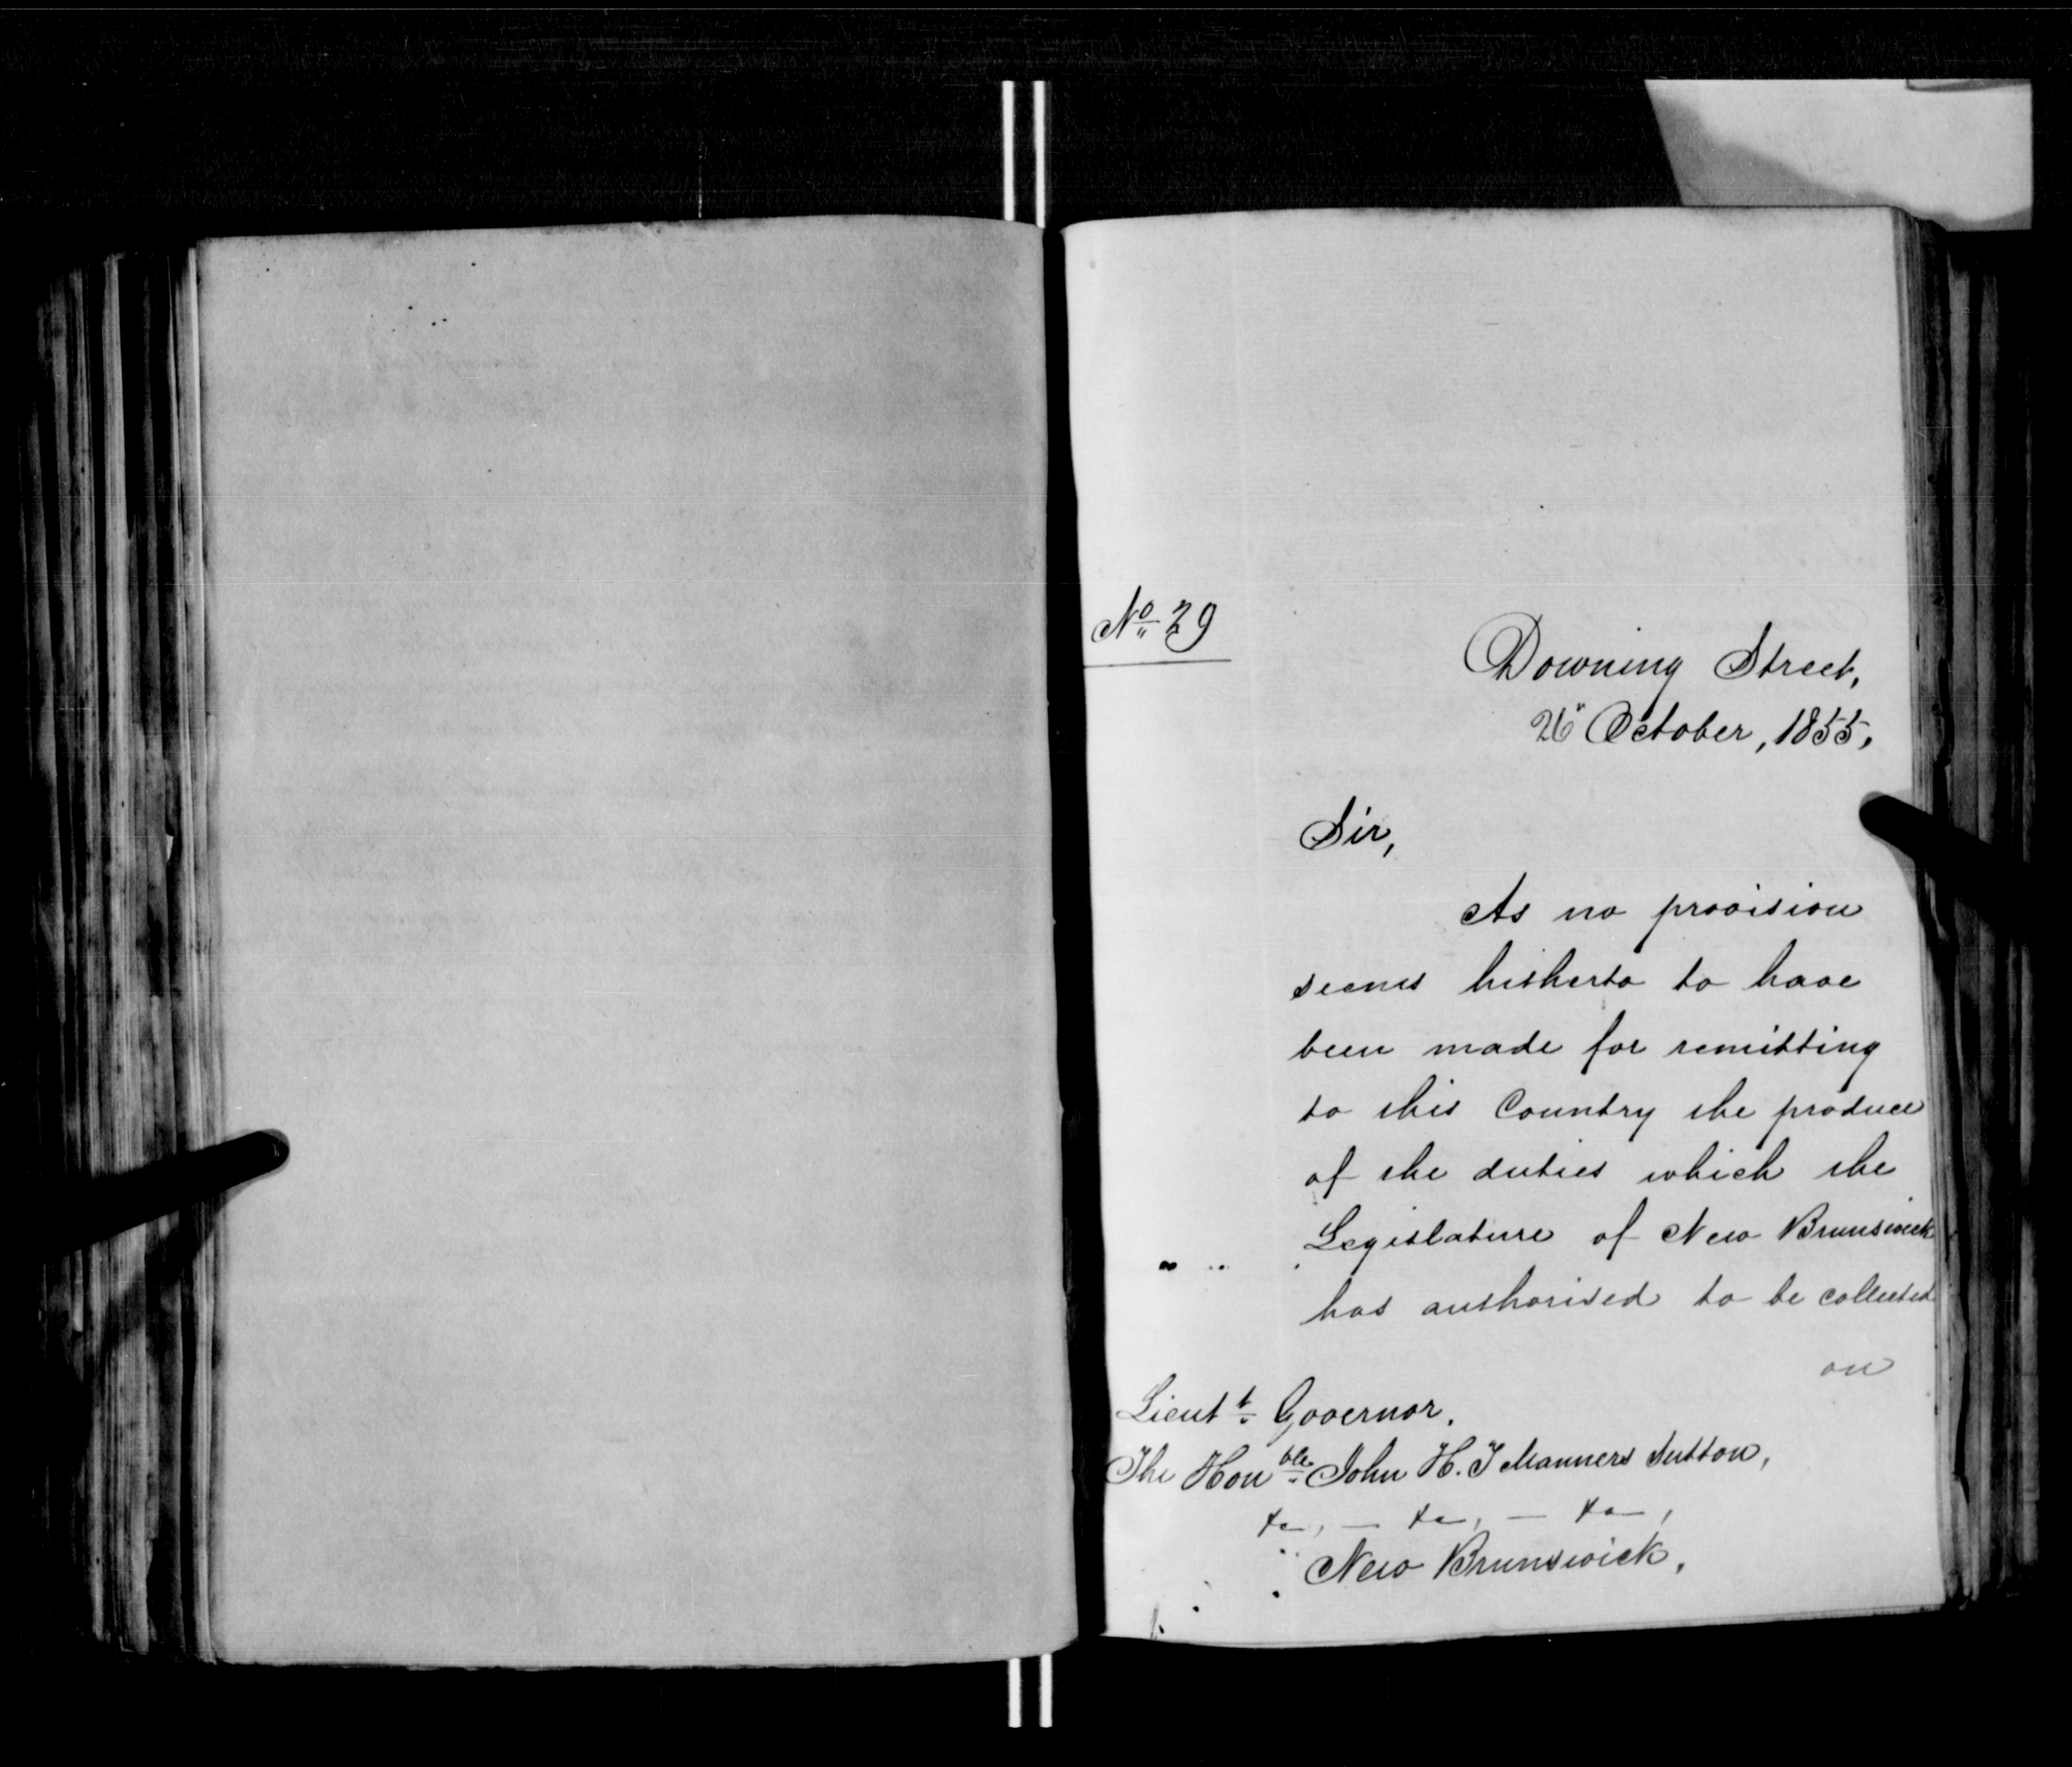 No 29
Downing Street,
26" October, 1855.
Sir,
As no provision
seems hitherto to have
been made for remitting
to this Country the produce
of the duties which the
Legislature of New Brunswick
has authorised to be collected
on
Lieutt Governor.
The Honble John H. T Manners Sutton,
&c, — &c, — &c,
New Brunswick.